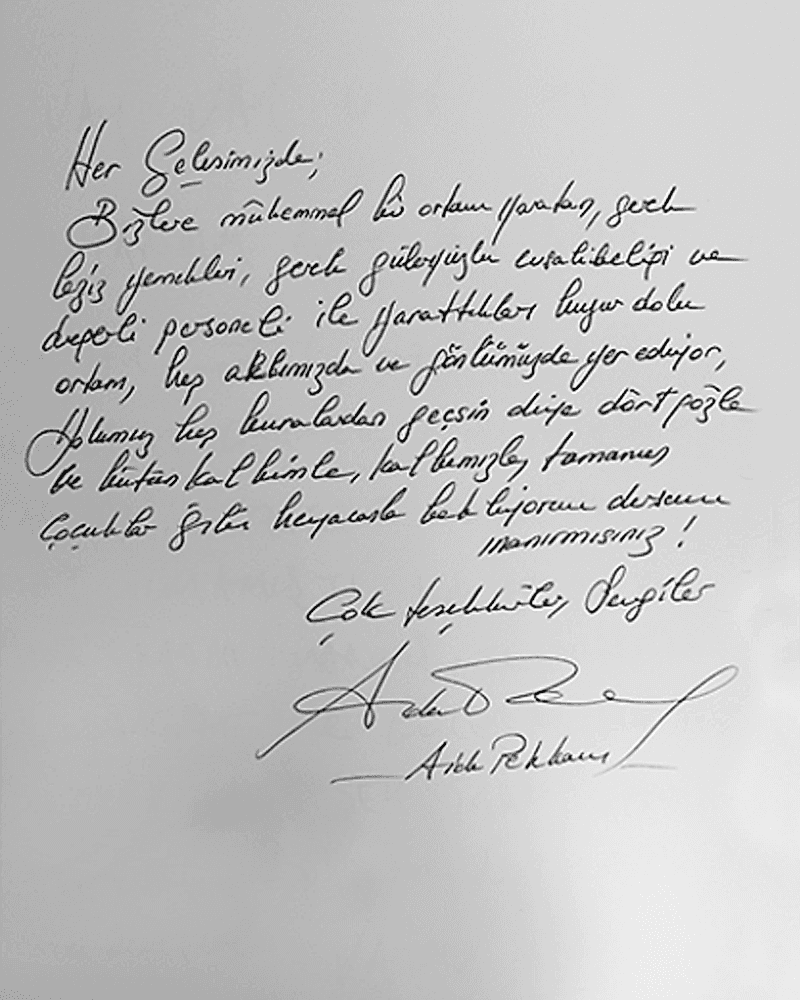 Her Gelişimizde;
Bizlere mükemmel bir ortam yaratan, gerek
leziz yemekleri, gerek güleryüzlü evsahibeliği ve
değerli personeli ile yarattıkları huzur dolu
ortam, hep aklımızda ve gönlümüzde yer ediyor,
Yolumuz hep buralardan geçsin diye dört gözle
ve bütün kalbimle, kalbimizle, tamamen
Çocuklar gibi heyacanla bekliyorum dersem
inanırmısınız!
Çok teşekkürler, Sevgiler
Ajda Pekkan